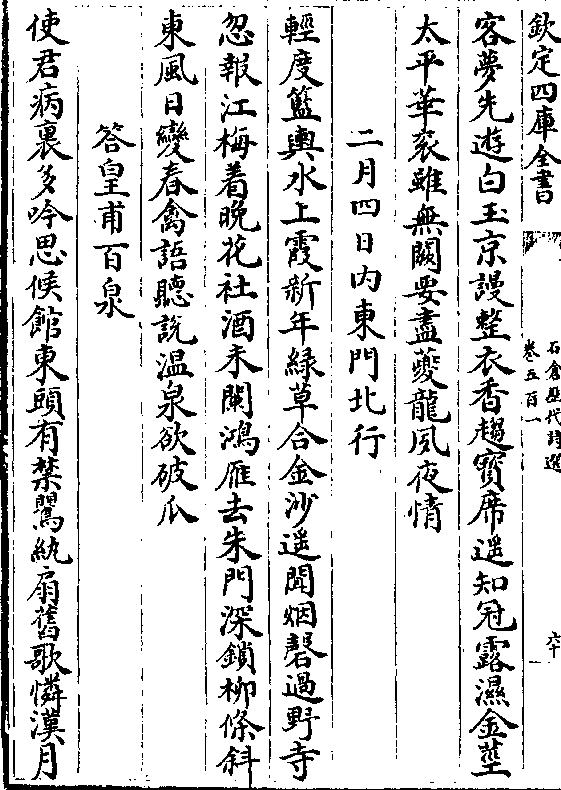 欽定四庫全書
石倉歷代詩選
卷五百一
六十一
客夢先遊白玉京謾整衣香趨寳席遥知冠露濕金莖
太平華衮雖無闕要盡夔龍夙夜情
二月四日内東門北行
輕度籃輿水上霞新年緑草合金沙遥聞烟磬過野寺
忽報江梅着晚花社酒未闌鴻雁去朱門深鎖柳條斜
東風日變春禽語聽説温泉欲破瓜
答皇甫百泉
使君病裏多吟思候館東頭有禁鸎紈扇舊歌憐漢月